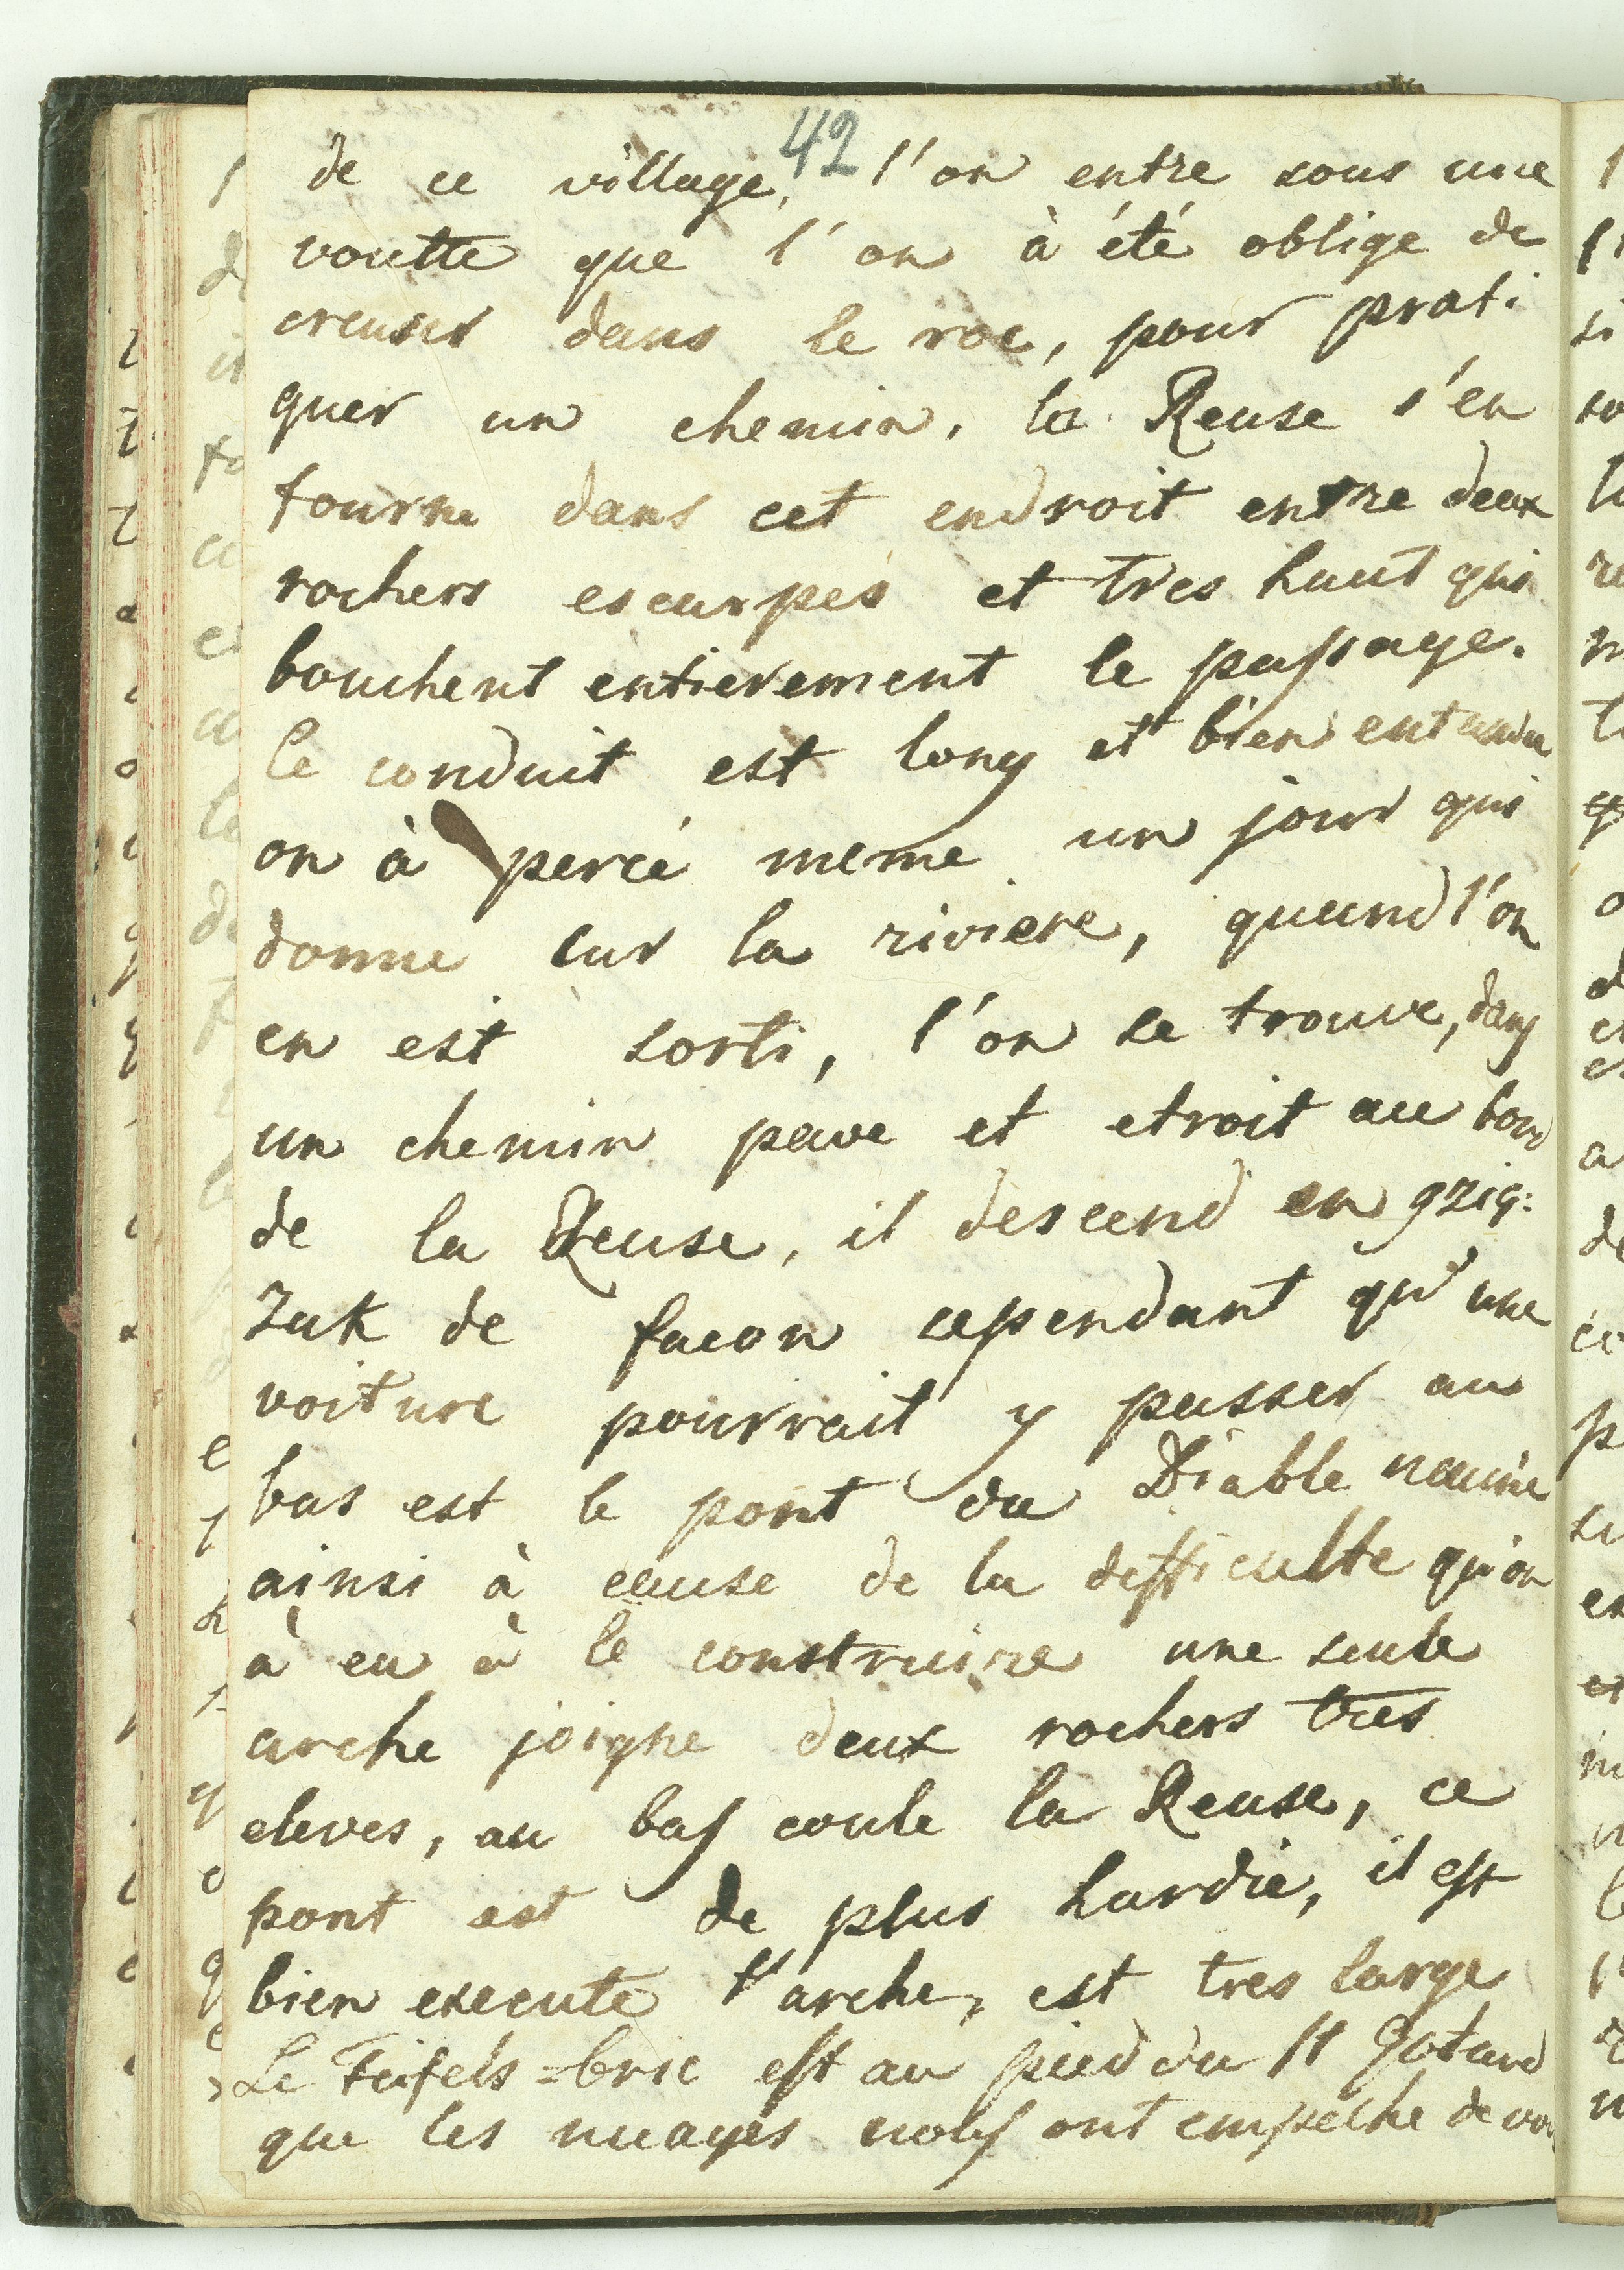 42
de ce village, l'on entre sous une
voutte que l'on à été oblige de
creuser dans le roc, pour prati
quer un chemin, la Reuse s'en
fourne dans cet endroit entre deux
rochers escarpés et tres haut qui
bouchent entierement le passage.
Ce conduit est long et bien entendu
on à percé meme un jour qui
donne sur la riviere, quand l'on
en est sorti, l'on se trouve, dans
un chemin pave et etroit au bord
de la Reuse, il descend en gzig:
zak de facon cependant qu'une
voiture pourrait y passer au
bas est le pont du Diable nommé
ainsi à cause de la difficulte qu'on
à eu à le construire une seule
arche joigne deux rochers tres
eleves, au bas coule la Reuse, ce
pont est de plus hardie, il est
bien execute l'arche, est tres large
Le Teifels=bric est au pied du St Gotard
que les nuages nous ont empeche de voi